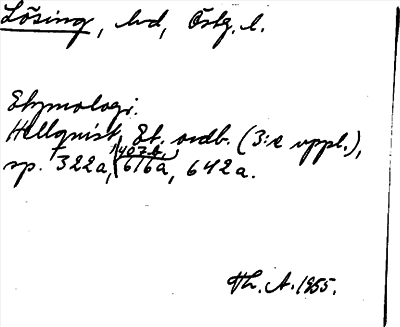 Lösing, hd, Östg. l.
Etymologi.
Hellquist, Et. ordb. (3:e uppl.),
407 b,
sp. 322a, 616a, 642a.
Th. A. 1955.